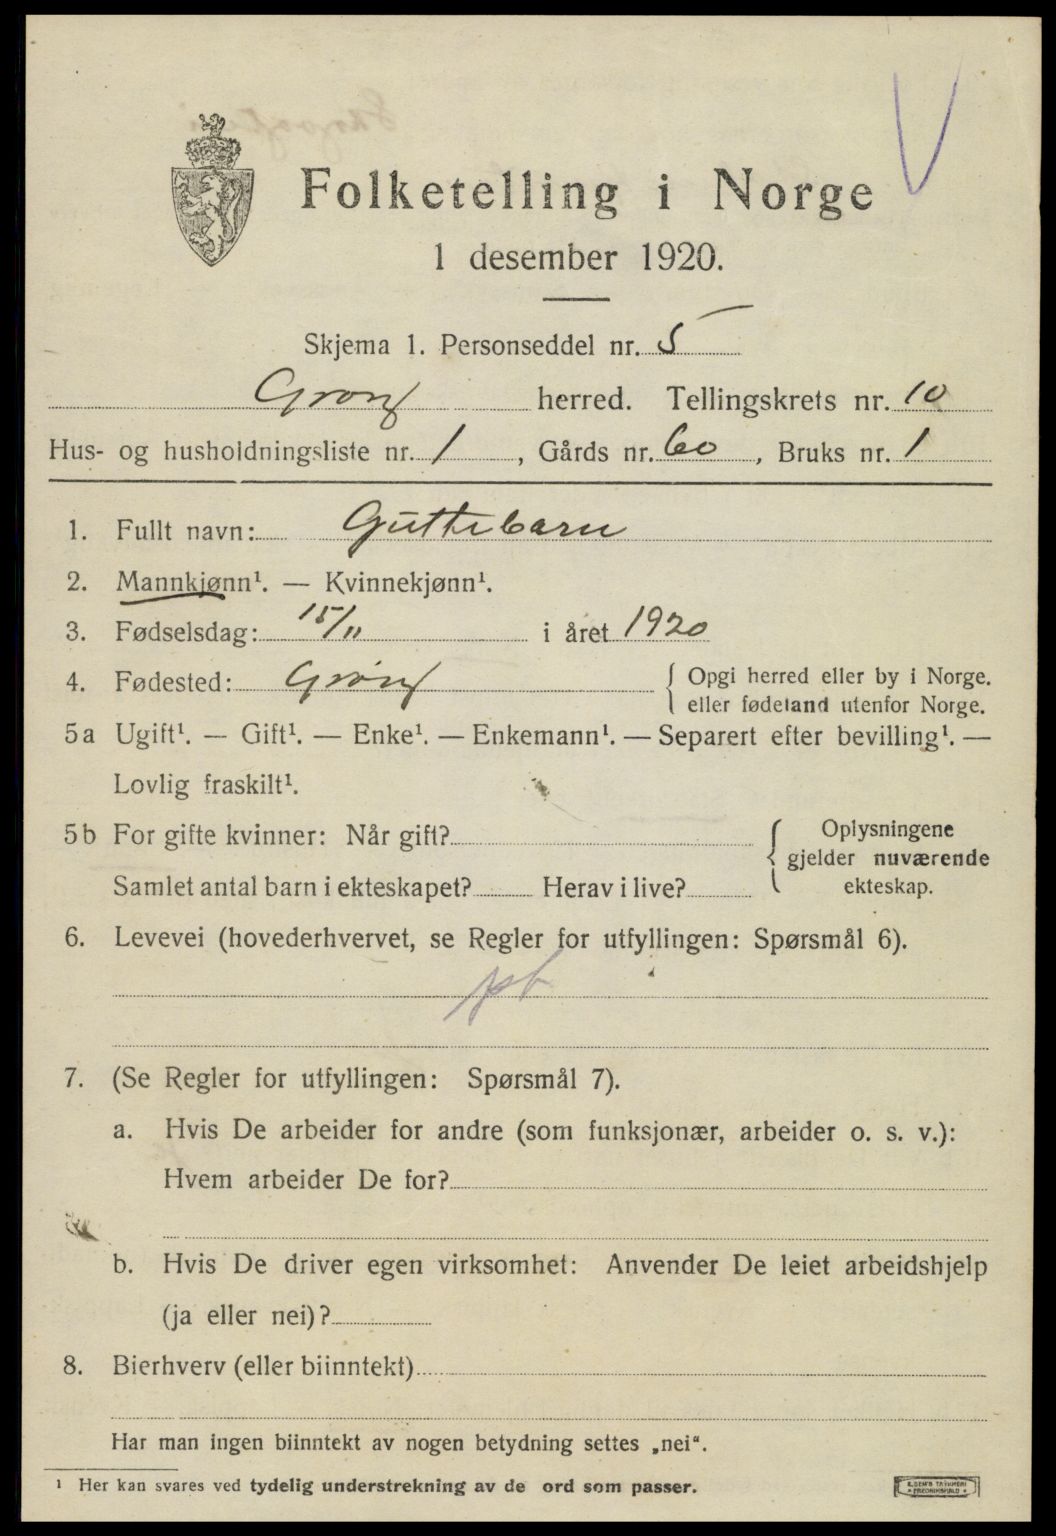 Folketelling i Norge
1 desember 1920.
Skjema 1. Personseddel nr. 5
Grong herred. Tellingskrets nr. 10
Hus- og husholdningsliste nr. 1, Gårds nr. 60, Bruks nr. 1
1. Fullt navn: Guttebarn
2. Mannkjønn¹. — Kvinnekjønn¹.
3. Fødselsdag: 15/11 i året 1920
4. Fødested: Grong { Opgi herred eller by i Norge.
eller fødeland utenfor Norge.
5a Ugift¹. — Gift¹. — Enke¹. — Enkemann¹. — Separert efter bevilling¹. —
Lovlig fraskilt¹.
5b For gifte kvinner: Når gift? { Oplysningene
gjelder nuværende
Samlet antal barn i ekteskapet? Herav i live? ekteskap.
6. Levevei (hovederhvervet, se Regler for utfyllingen: Spørsmål 6).
7. (Se Regler for utfyllingen: Spørsmål 7).
a. Hvis De arbeider for andre (som funksjonær, arbeider o. s. v.):
Hvem arbeider De for?
b. Hvis De driver egen virksomhet: Anvender De leiet arbeidshjelp
(ja eller nei)?
8. Bierhverv (eller biinntekt)
Har man ingen biinntekt av nogen betydning settes „nei“.
¹ Her kan svares ved tydelig understrekning av de ord som passer.